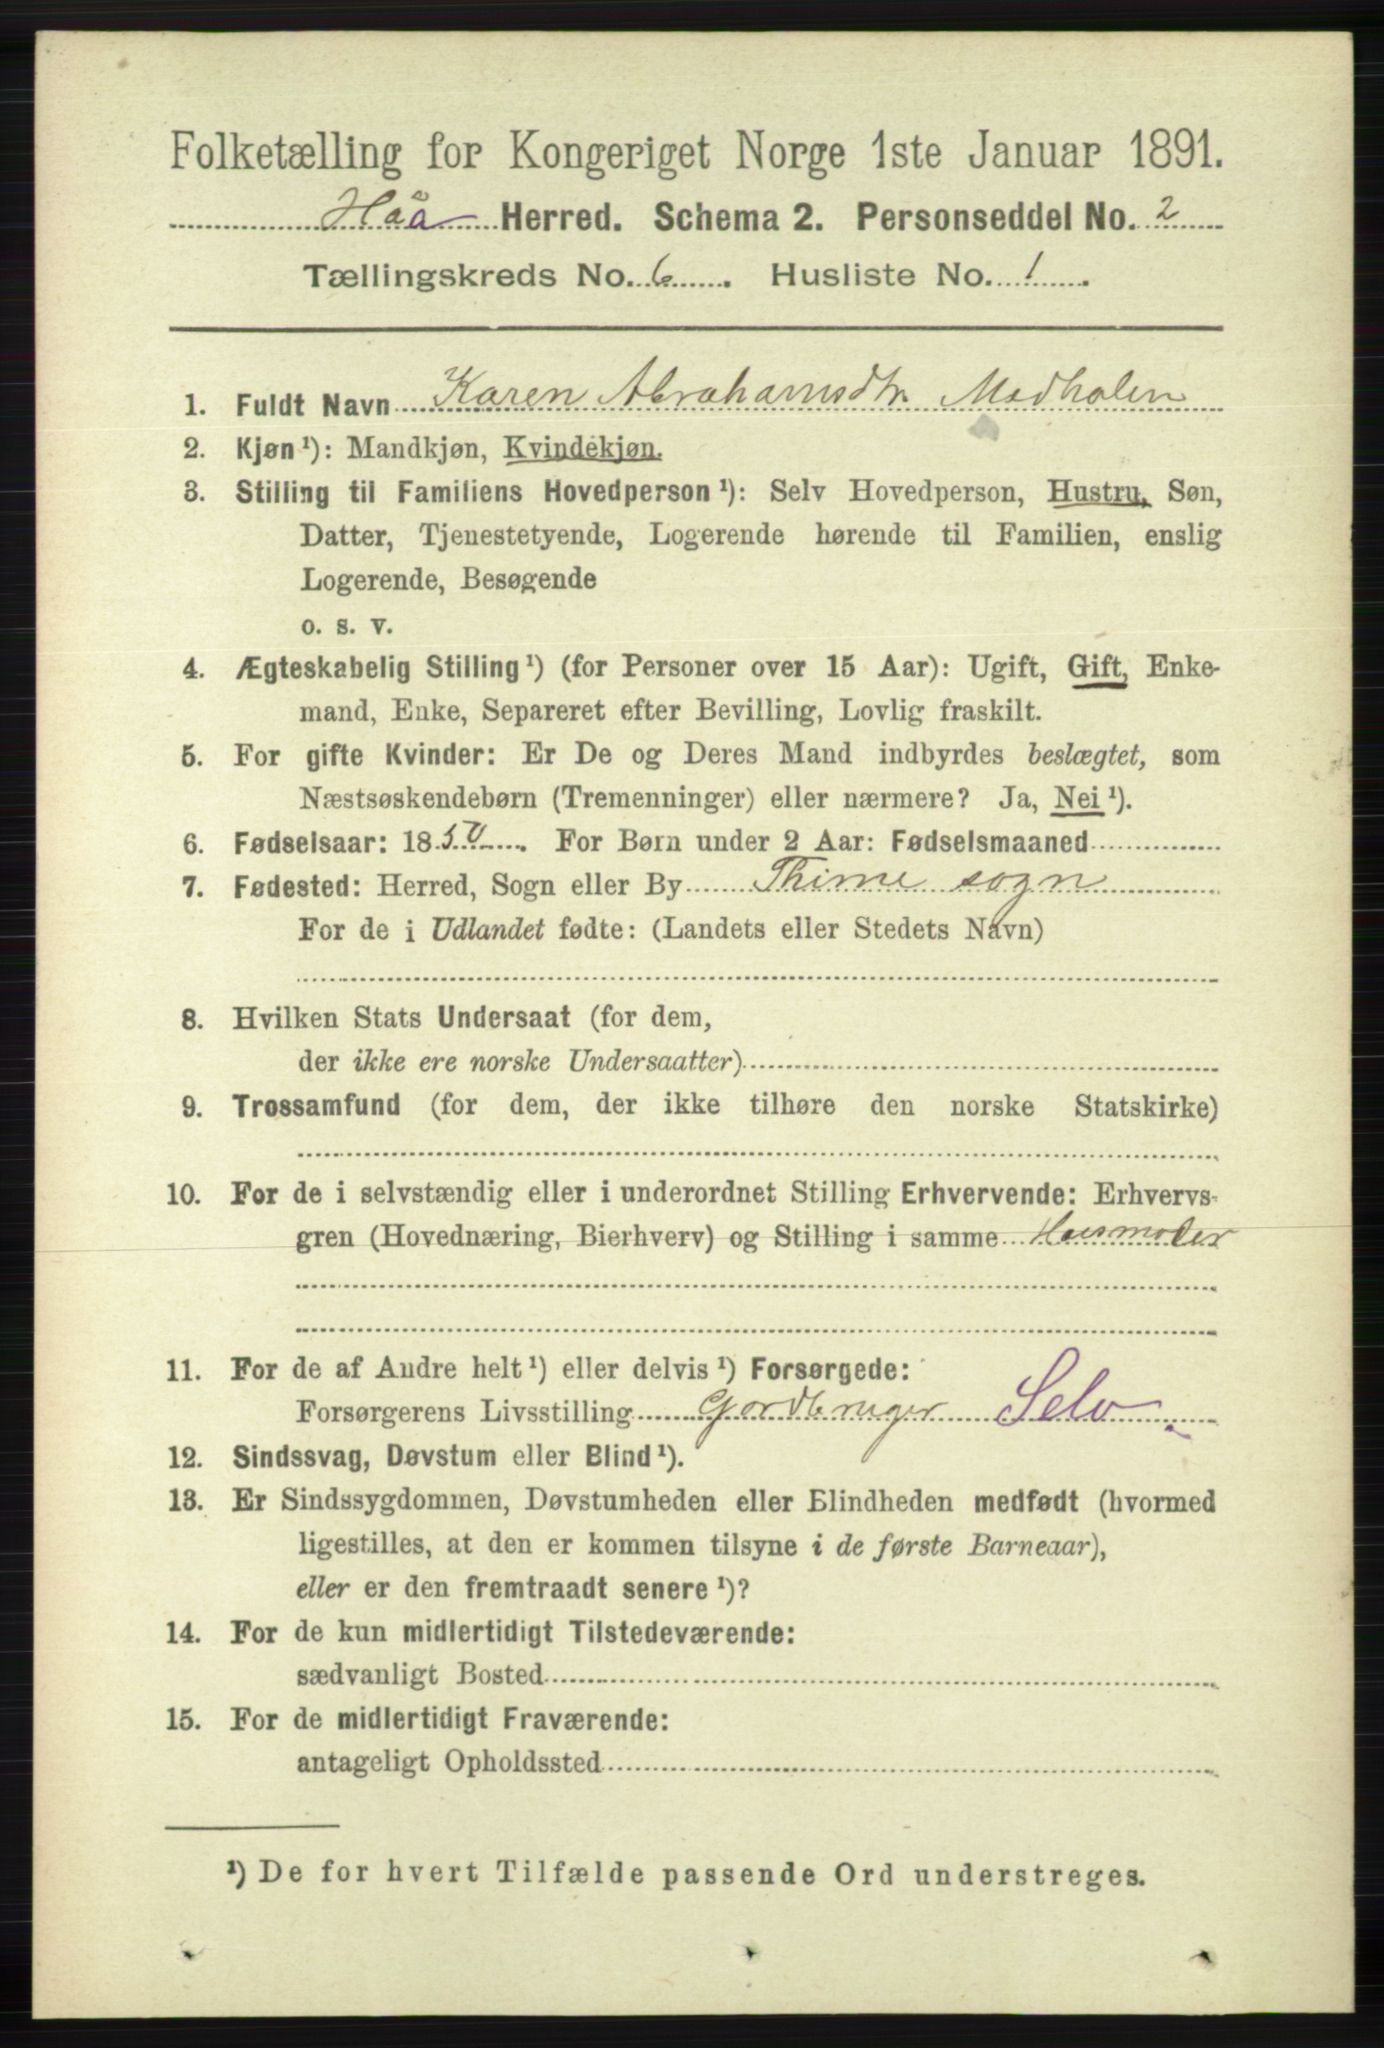 Folketælling for Kongeriget Norge 1ste Januar 1891.
Håa Herred. Schema 2. Personseddel No. 2
Tællingskreds No. 6. Husliste No. 1.
1. Fuldt Navn Karen Abrahamsdtr. Madholen
2. Kjøn ¹): Mandkjøn, Kvindekjøn.
3. Stilling til Familiens Hovedperson ¹): Selv Hovedperson, Hustru, Søn,
Datter, Tjenestetyende, Logerende hørende til Familien, enslig
Logerende, Besøgende
o. s. v.
4. Ægteskabelig Stilling ¹) (for Personer over 15 Aar): Ugift, Gift, Enke-
mand, Enke, Separeret efter Bevilling, Lovlig fraskilt.
5. For gifte Kvinder: Er De og Deres Mand indbyrdes beslægtet, som
Næstsøskendebørn (Tremenninger) eller nærmere? Ja, Nei ¹).
6. Fødselsaar: 1850. For Børn under 2 Aar: Fødselsmaaned
7. Fødested: Herred, Sogn eller By Thime sogn
For de i Udlandet fødte: (Landets eller Stedets Navn)
8. Hvilken Stats Undersaat (for dem,
der ikke ere norske Undersaatter)
9. Trossamfund (for dem, der ikke tilhøre den norske Statskirke)
10. For de i selvstændig eller i underordnet Stilling Erhvervende: Erhvervs-
gren (Hovednæring, Bierhverv) og Stilling i samme Husmoder
11. For de af Andre helt ¹) eller delvis ¹) Forsørgede:
Forsørgerens Livsstilling Gordbruger Selv.
12. Sindssvag, Døvstum eller Blind ¹).
13. Er Sindssygdommen, Døvstumheden eller Blindheden medfødt (hvormed
ligestilles, at den er kommen tilsyne i de første Barneaar),
eller er den fremtraadt senere ¹)?
14. For de kun midlertidigt Tilstedeværende:
sædvanligt Bosted
15. For de midlertidigt Fraværende:
antageligt Opholdssted
¹) De for hvert Tilfælde passende Ord understreges.